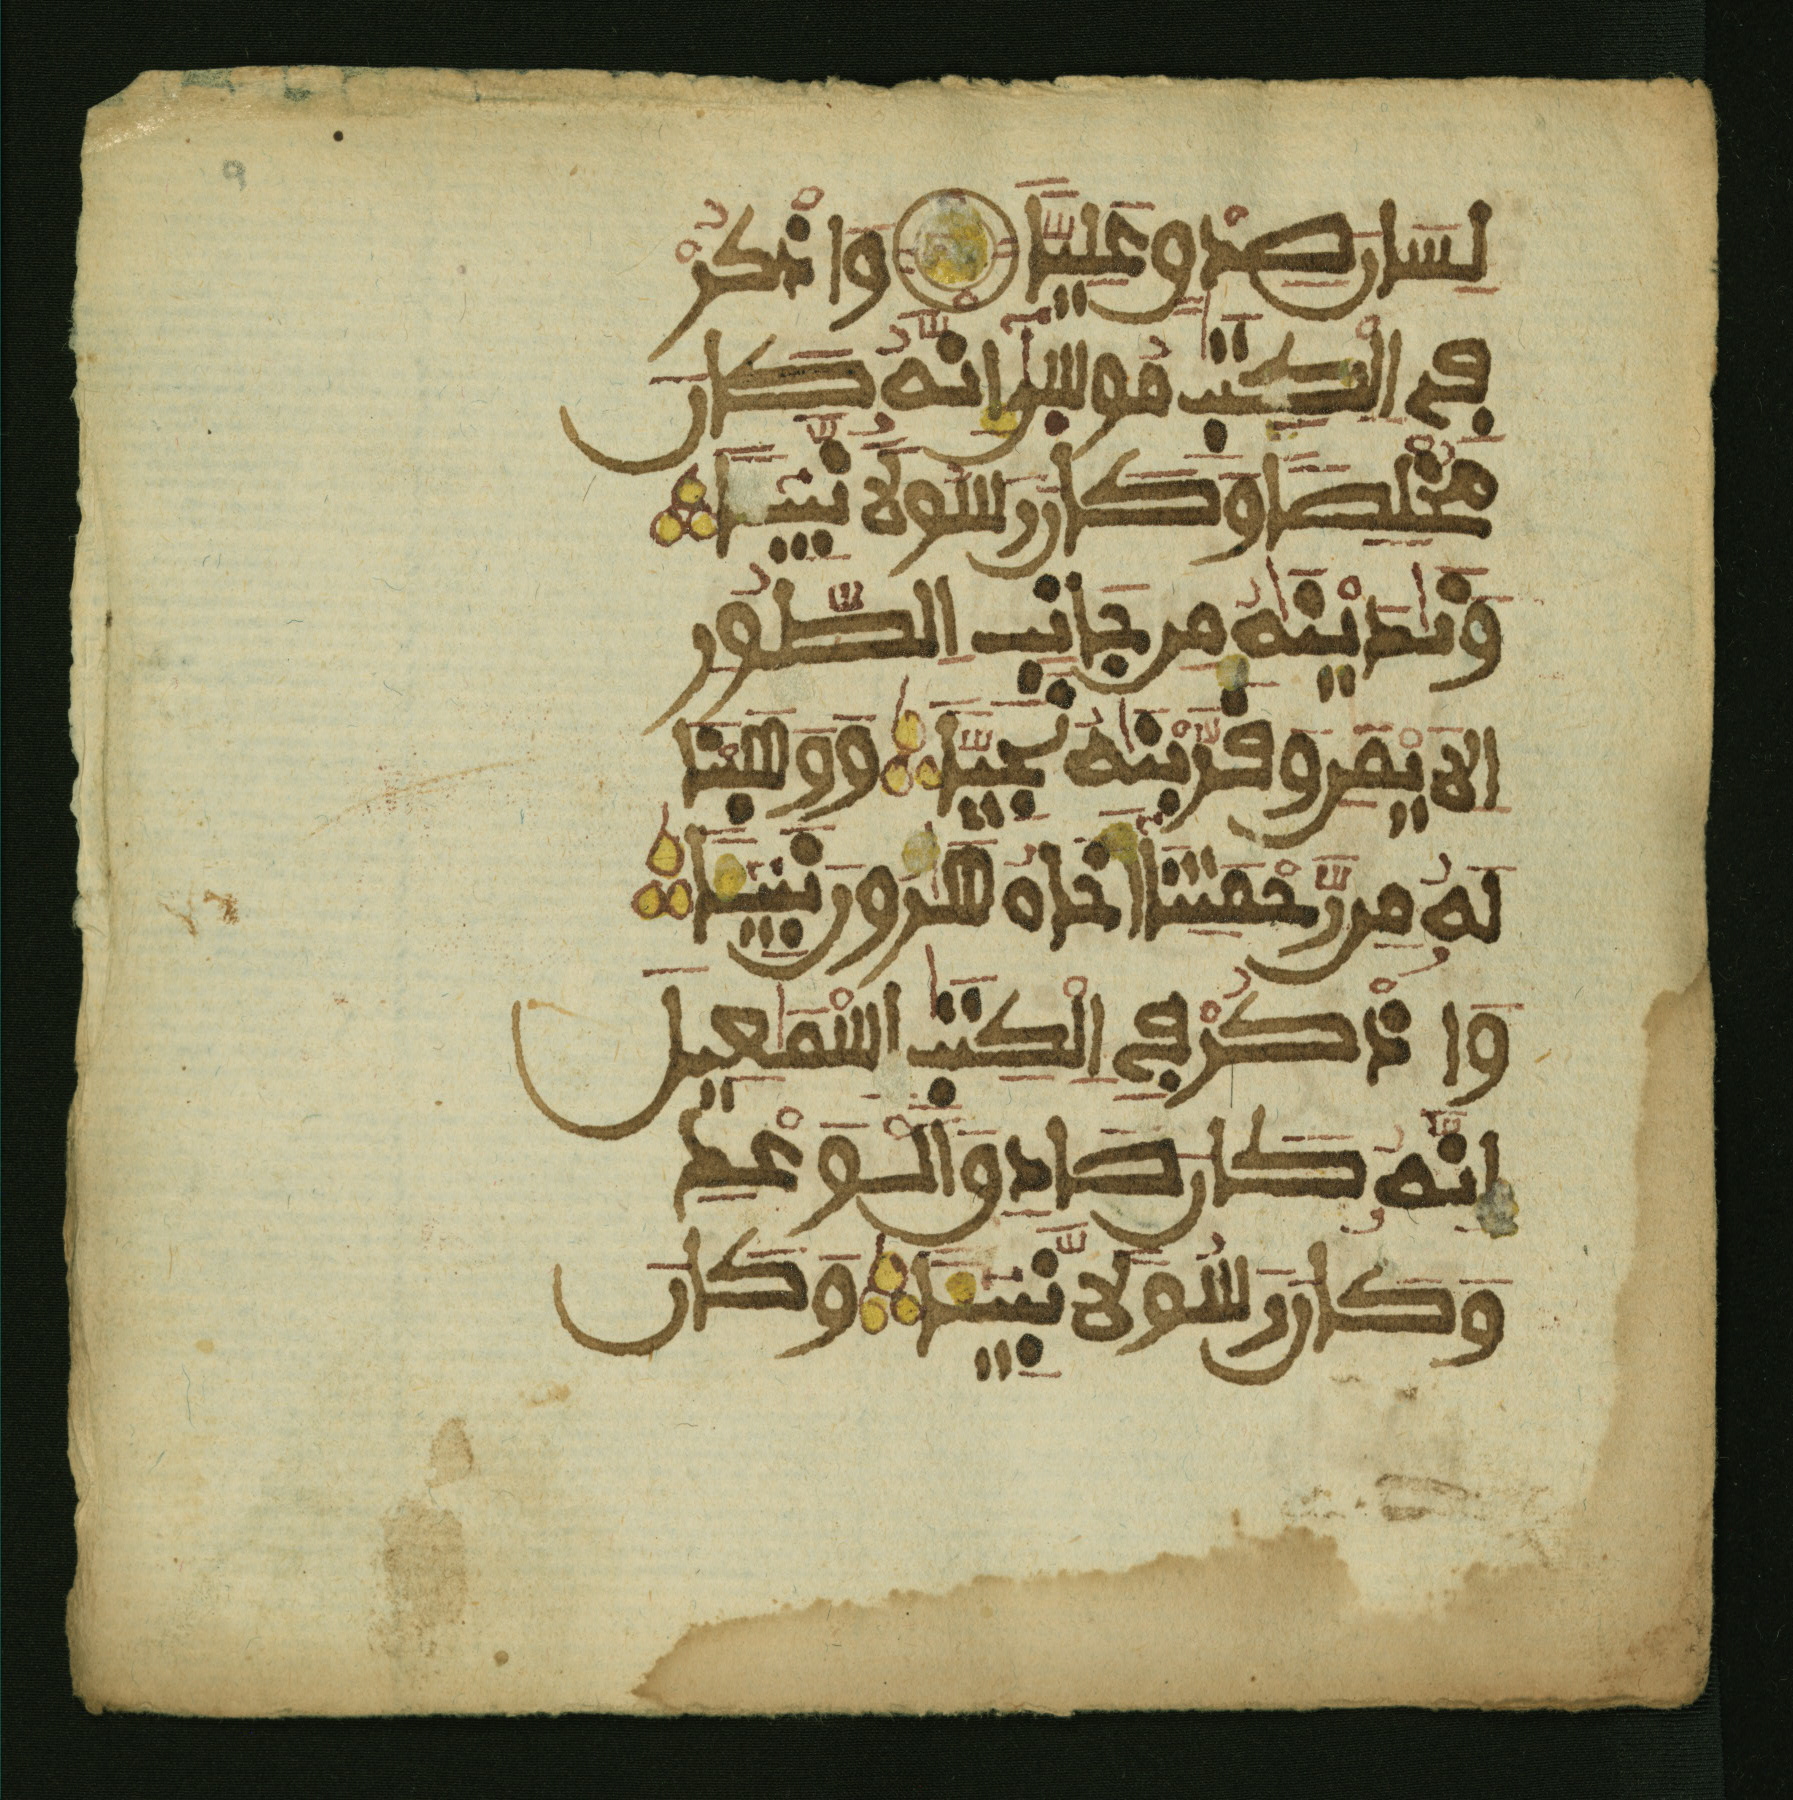 لِسَانَ صِدْقٍ عَلِيًّا وَاذْكُرْ
فِي الْكِتَٰبِ مُوسَىٰ إِنَّهُ كَانَ
مُخْلِصًا وَكَانَ رَسُولًا نَّبِيـًٔا
وَنَٰدَيْنَٰهُ مِن جَانِبِ الطُّورِ
الْأَيْمَنِ وَقَرَّبْنَٰهُ نَجِيًّا وَوَهَبْنَا
لَهُ مِن رَّحْمَتِنَا أَخَاهُ هَٰرُونَ نَبِيـًٔا
وَاذْكُرْ فِي الْكِتَٰبِ إِسْمَٰعِيلَ
إِنَّهُ كَانَ صَادِقَ الْوَعْدِ
وَكَانَ رَسُولًا نَّبِيـًٔا وَكَانَ